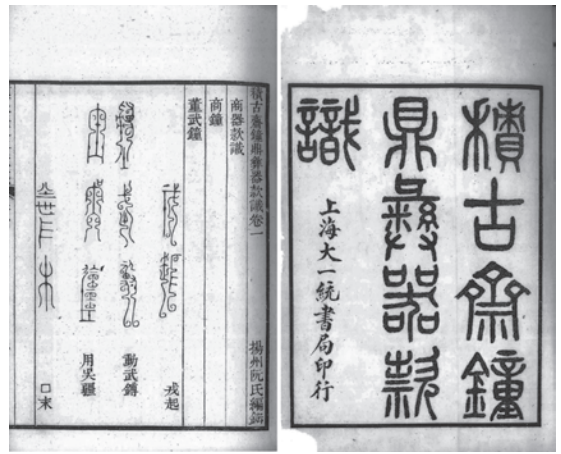 積古齋鐘
鼎彝器款
識
上海大一統書局印行
積古齋鐘鼎彝器款識卷一　揚州阮氏編錄
商器款識
商鐘
董武鐘
戎起
動武鎛
用吳疆
口末